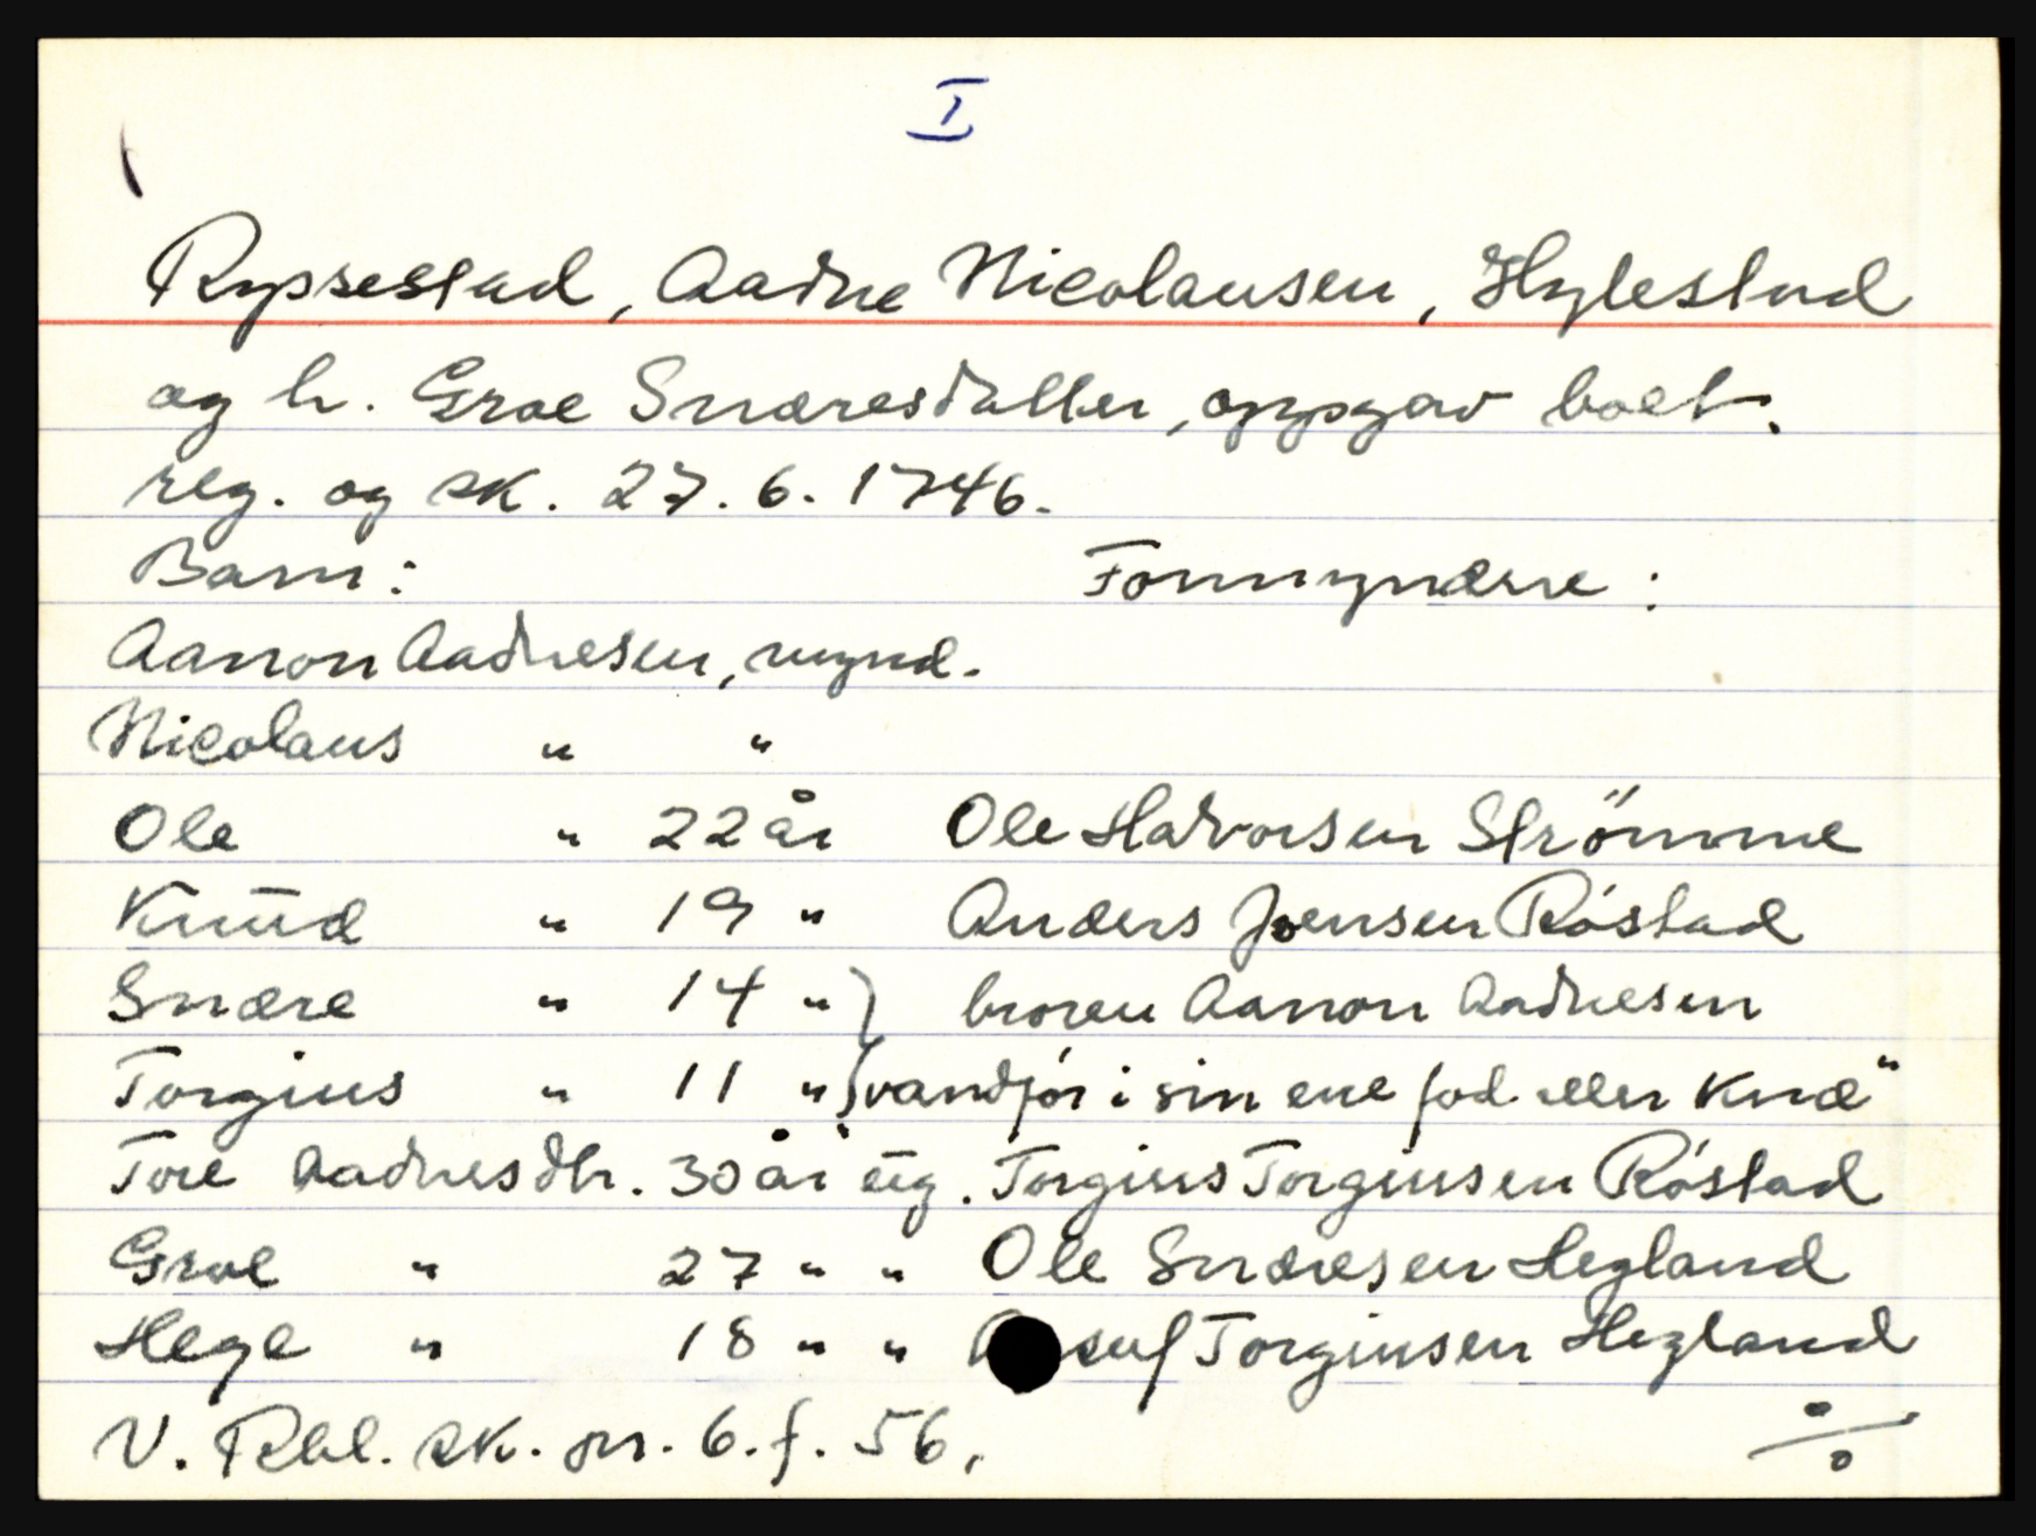 I
Ryssestad, Aadne Nicolausen, Hylestad
og h. Groe Snaresdatter, oppgav boet.
reg. og sk. 27. 6. 1746.
Barn: Formyndere:
Aanon Aadnesen, mynd.
Nicolaus " "
Ole " 22 år Ole Halvorsen Strömme
Knud " 19 " Anders Joensen Röstad
Snære " 14 " } broren Aanon Aadnesen
Torgius " 11 " } vandför i sin ene fod eller Knæ"
Tore Aadnesdtr. 30 år úg. Torgius Torgiusen Röstad
Groe " 27 " " Ole Snæresen Hegland
Hege " 18 " " Torgiusen Hegland
V. Rbl. sk. pr. 6. f. 56.
%